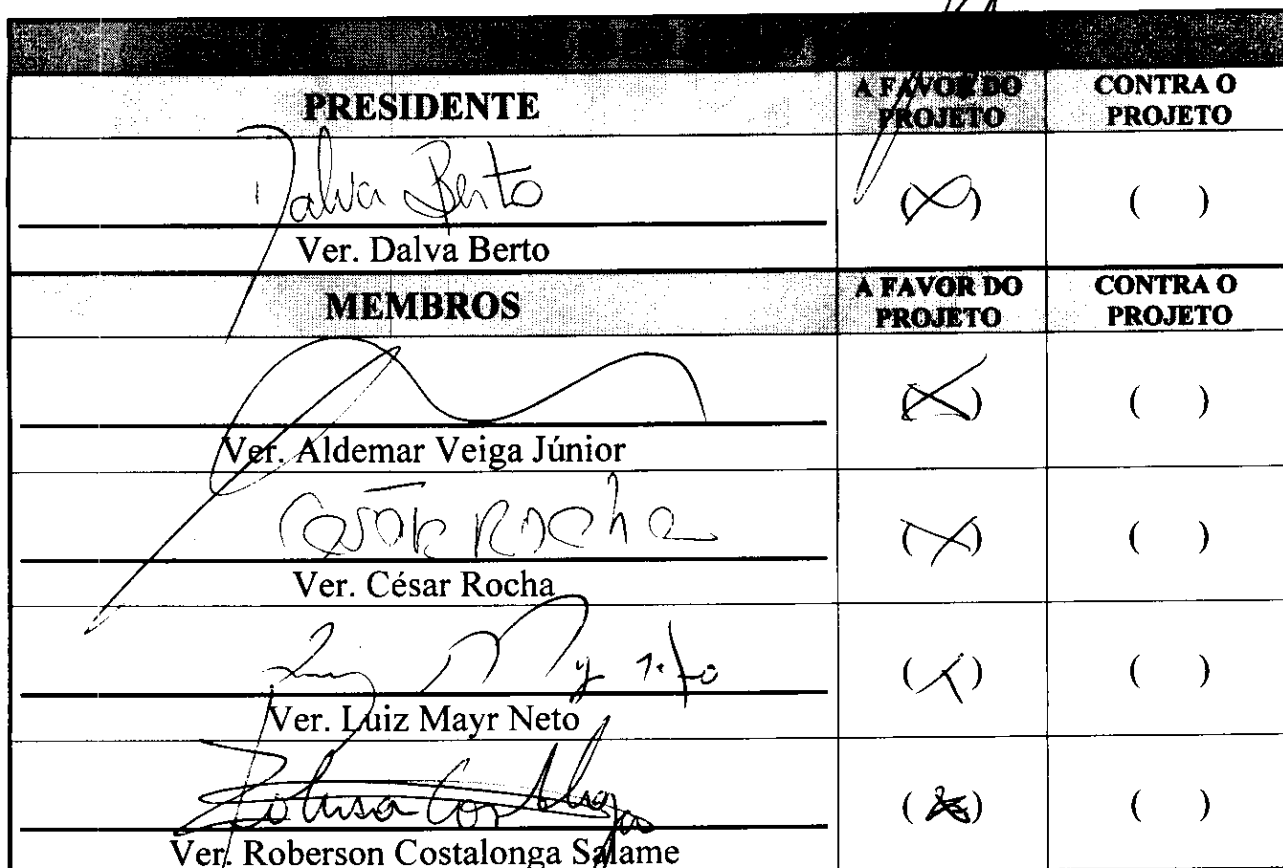 PRESIDENTE A FAVOR DO PROJETO CONTRA O PROJETO
Dalva Berto (X) ( )
Ver. Dalva Berto
MEMBROS A FAVOR DO PROJETO CONTRA O PROJETO
(X) ( )
Ver. Aldemar Veiga Júnior
César Rocha (X) ( )
Ver. César Rocha
(X) ( )
Ver. Luiz Mayr Neto
(X) ( )
Ver. Roberson Costalonga Salame